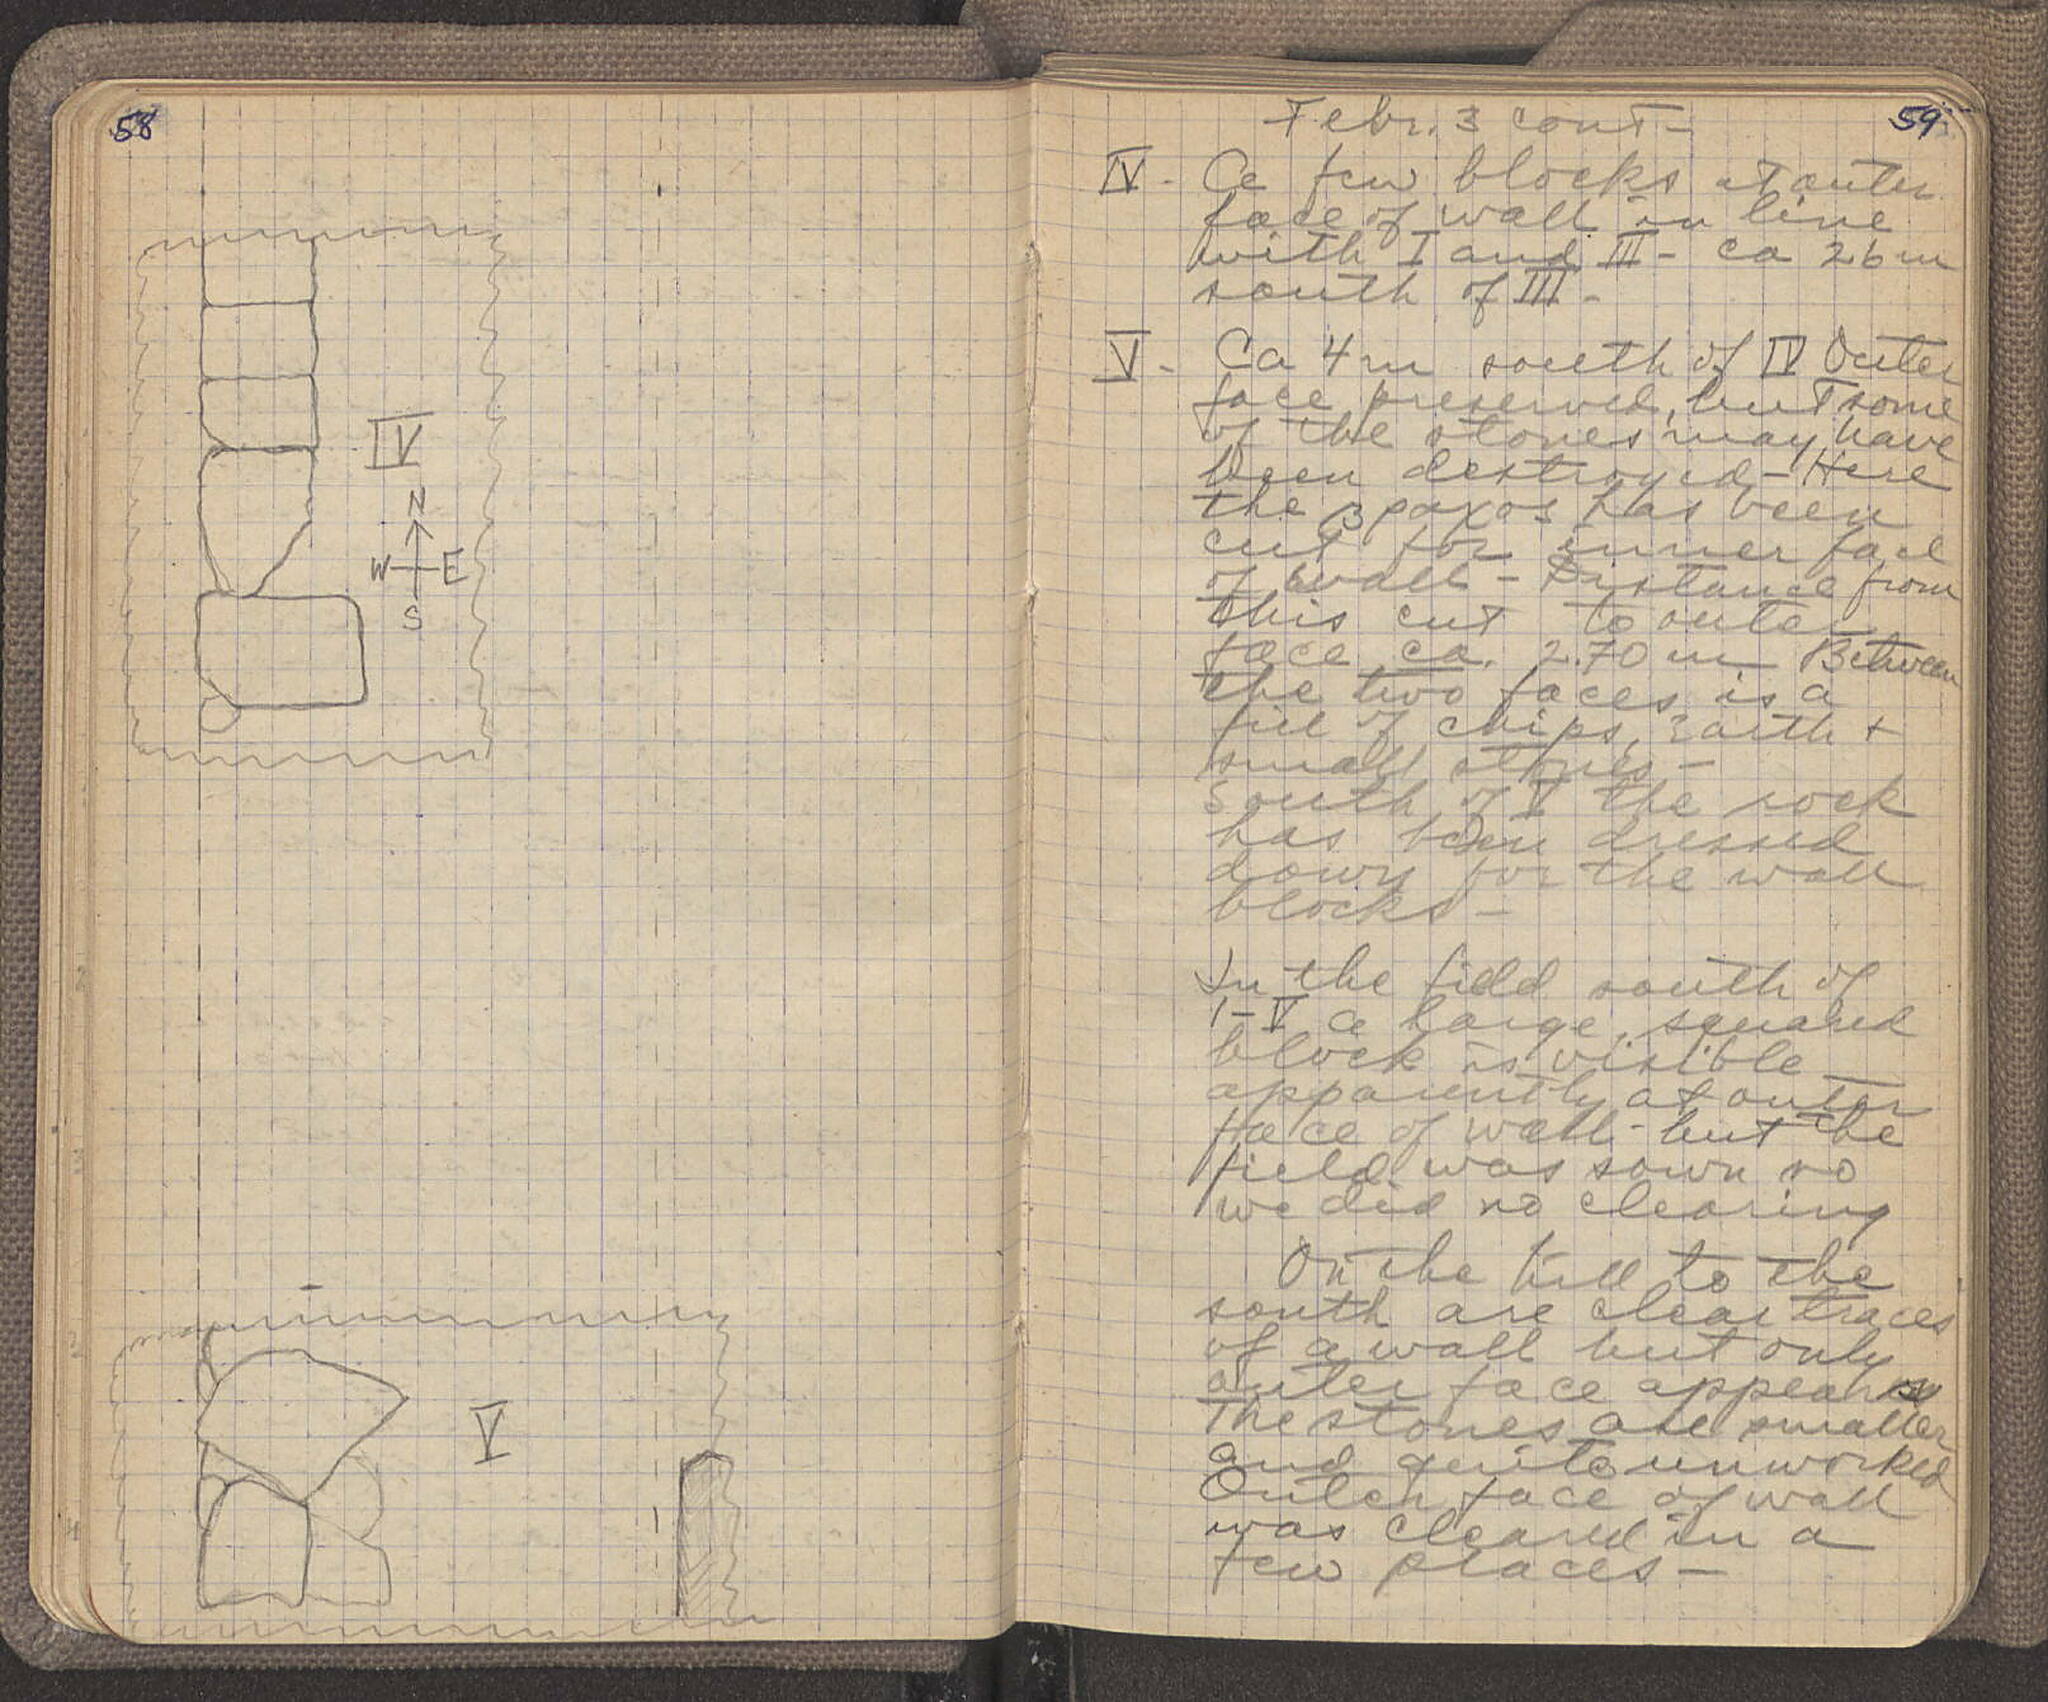 58
IV
N
W E
S
V
59
Febr. 3 cont -
IV - A few blocks at outer
face of wall in line
with I and III - ca 26 m
south of III -
V - Ca 4 m south of IV Outer
face preserved, but some
of the stones may have
been destroyed - Here
the βραχος has been
cut for inner face
of wall - Distance from
this cut to outer
face ca. 2.70 m Between
the two faces is a
fill of chips, earth +
small stones -
South of V the rock
has been dressed
down for the wall
blocks -
In the field south of
I - V a large, squared
block is visible
apparently at outer
face of wall - but the
field was sown so
we did no clearing
On the hill to the
south are clear traces
of a wall but only
outer face appears
The stones are smaller
and quite unworked
Outer face of wall
was cleared in a
few places -